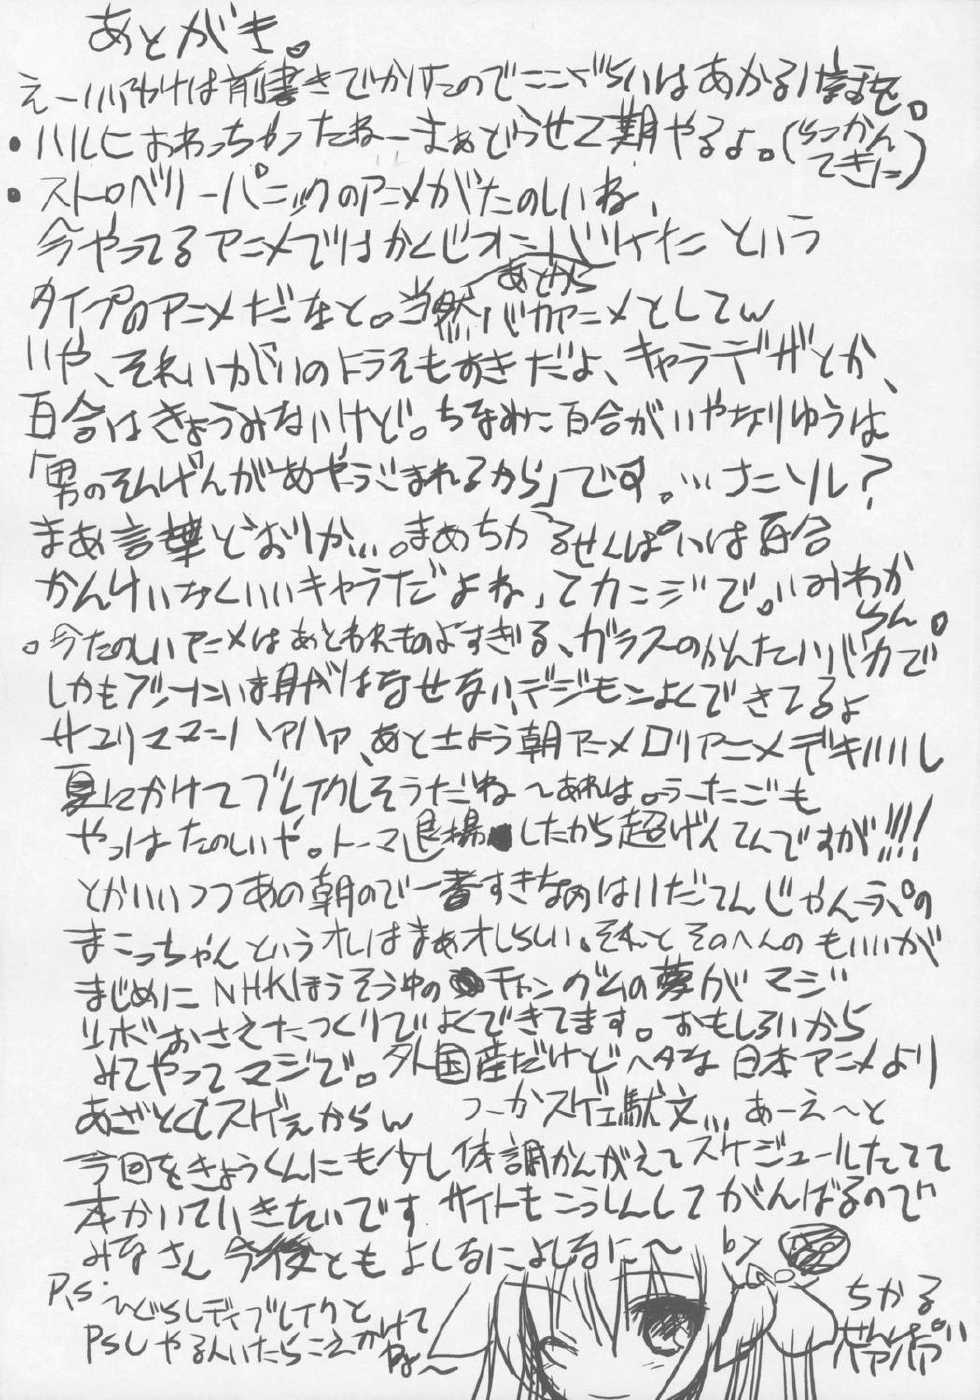 あとがき。
えーいいわけは前書きでかけたのでここぐらいはあかるい話を。
・ハルヒおわっちゃったねーまぁどうせ2期やるよ。(らっかんてきに)
・ストロベリーパニックのアニメがたのしいね、
今やってるアニメではかくじつにバケた という
タイプのアニメだなと。当然バカアニメとしてw
あとから
いや、それいがいのドラマもすきだよ、キャラデザとか、
百合はきょうみないけど。ちなみに百合がいやなりゆうは
「男のそんげんがあやぶまれるから」です。…ナニソレ?
まあ言葉どおりか…。まぁちかるせんぱいは百合
かんけいなくいいキャラだよね、てカンジで。いみわからん。
。今たのしいアニメは あと われものよすぎる、ガラスのかんたいバカで
しかもブリーに いま目がはなせない、デジモンよくできてるよ
サユリママンハァハァ、あと土よう朝アニメロリアニメデキいいし
夏にかけてブレイクしそうだね〜あれは。うーたごも
やっぱたのしいや。トーマ退場したから超げんてんですが!!!!
とかいいつつあの朝ので一番すきなのはいだてんじゃんぷの
まこっちゃんというオレはまぁオレらしい。それとそのへんのもいいが
まじめにNHKほうそう中のチャングムの夢がマジ
ツボおさえたつくりでよくできてます。おもしろいから
みてやってマジで。外国産だけどヘタな日本アニメより
あざとくてスゲぇからw つーかスゲェ駄文… あーえ〜と
今回をきょうくんにも少し体調かんがえてスケジュールたてて
本かいていきたいです サイトもこうしんしてがんばるので
みなさん今後ともよしなによしなに〜 by
ちかるせんぱいハァハァ
P.S. ひぐらしデイブレイクと
PSUやる人いたらこえかけて
ね〜